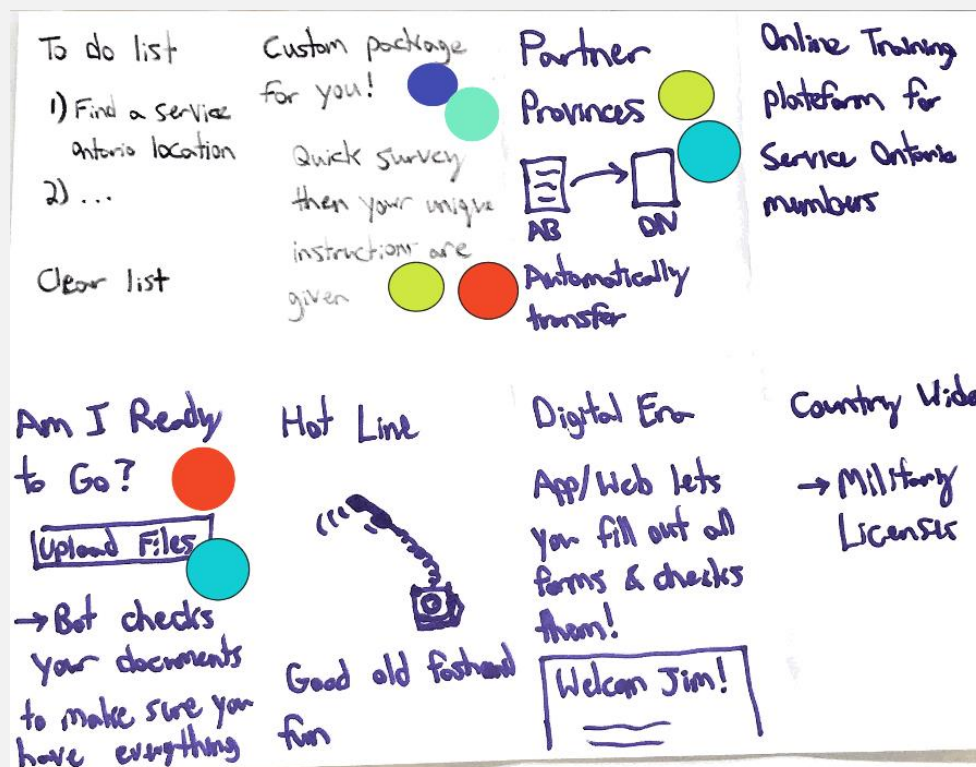 To do list
1) Find a service
ontario location
2) ...
Clear list
Custom package
for you!
Quick survey
then your unique
instructions are
given
Partner
Provinces
AB
ON
Automatically
transfer
Online Training
plateform for
Service Ontario
members
Am I Ready
to Go?
Upload Files
→ Bot checks
your documents
to make sure you
have everything
Hot Line
Good old fashond
fun
Digital Era
App/Web lets
you fill out all
forms & checks
them!
Welcom Jim!
Country Wide
→ Military
Licenses